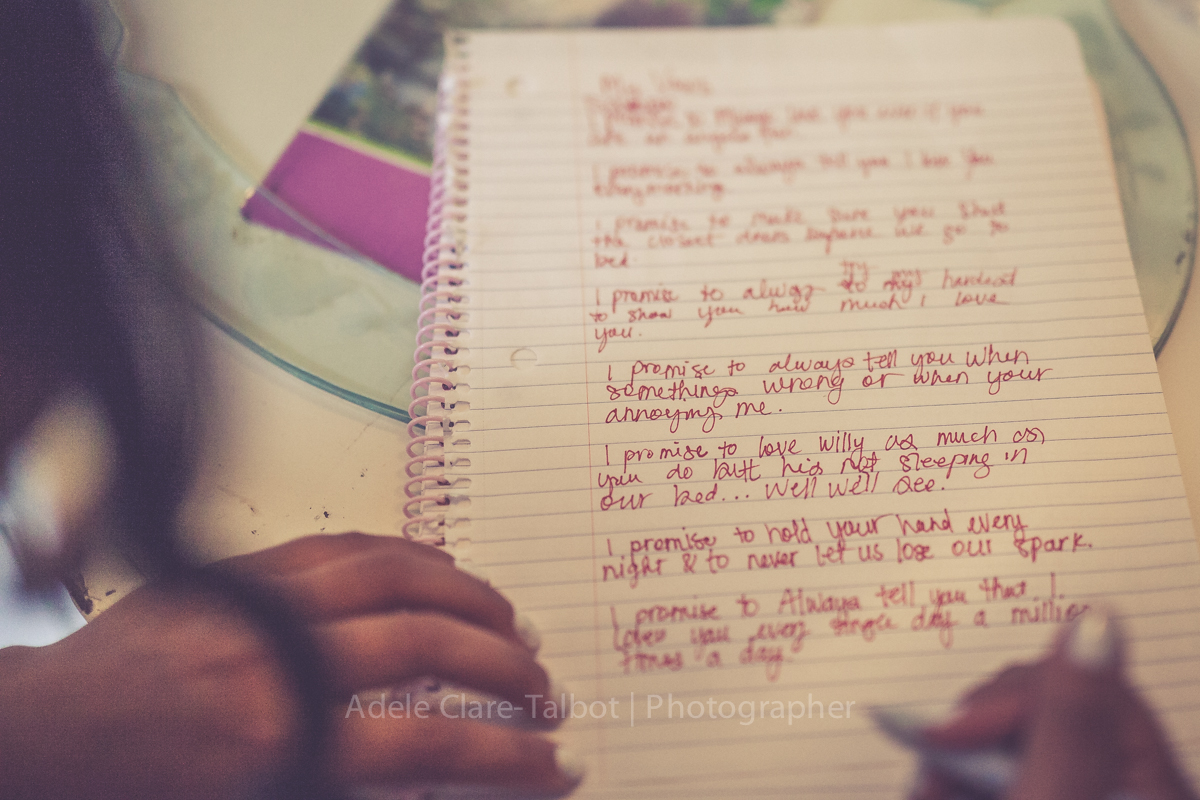 My Vows
I promise to always love you even if you
I promise to always tell you I love you
every morning.
I promise to make sure you shut
the closet doors before we go to
bed.
try
I promise to always to my hardest
to show you how much I love
you.
I promise to always tell you when
somethings wrong or when your
annoying me.
I promise to love willy as much as
you do butt his not sleeping in
our bed... Well we'll see.
I promise to hold your hand every
night & to never let us lose our spark.
I promise to Always tell you that I
loves you every single day a million
times a day.
Adele Clare-Talbot | Photographer